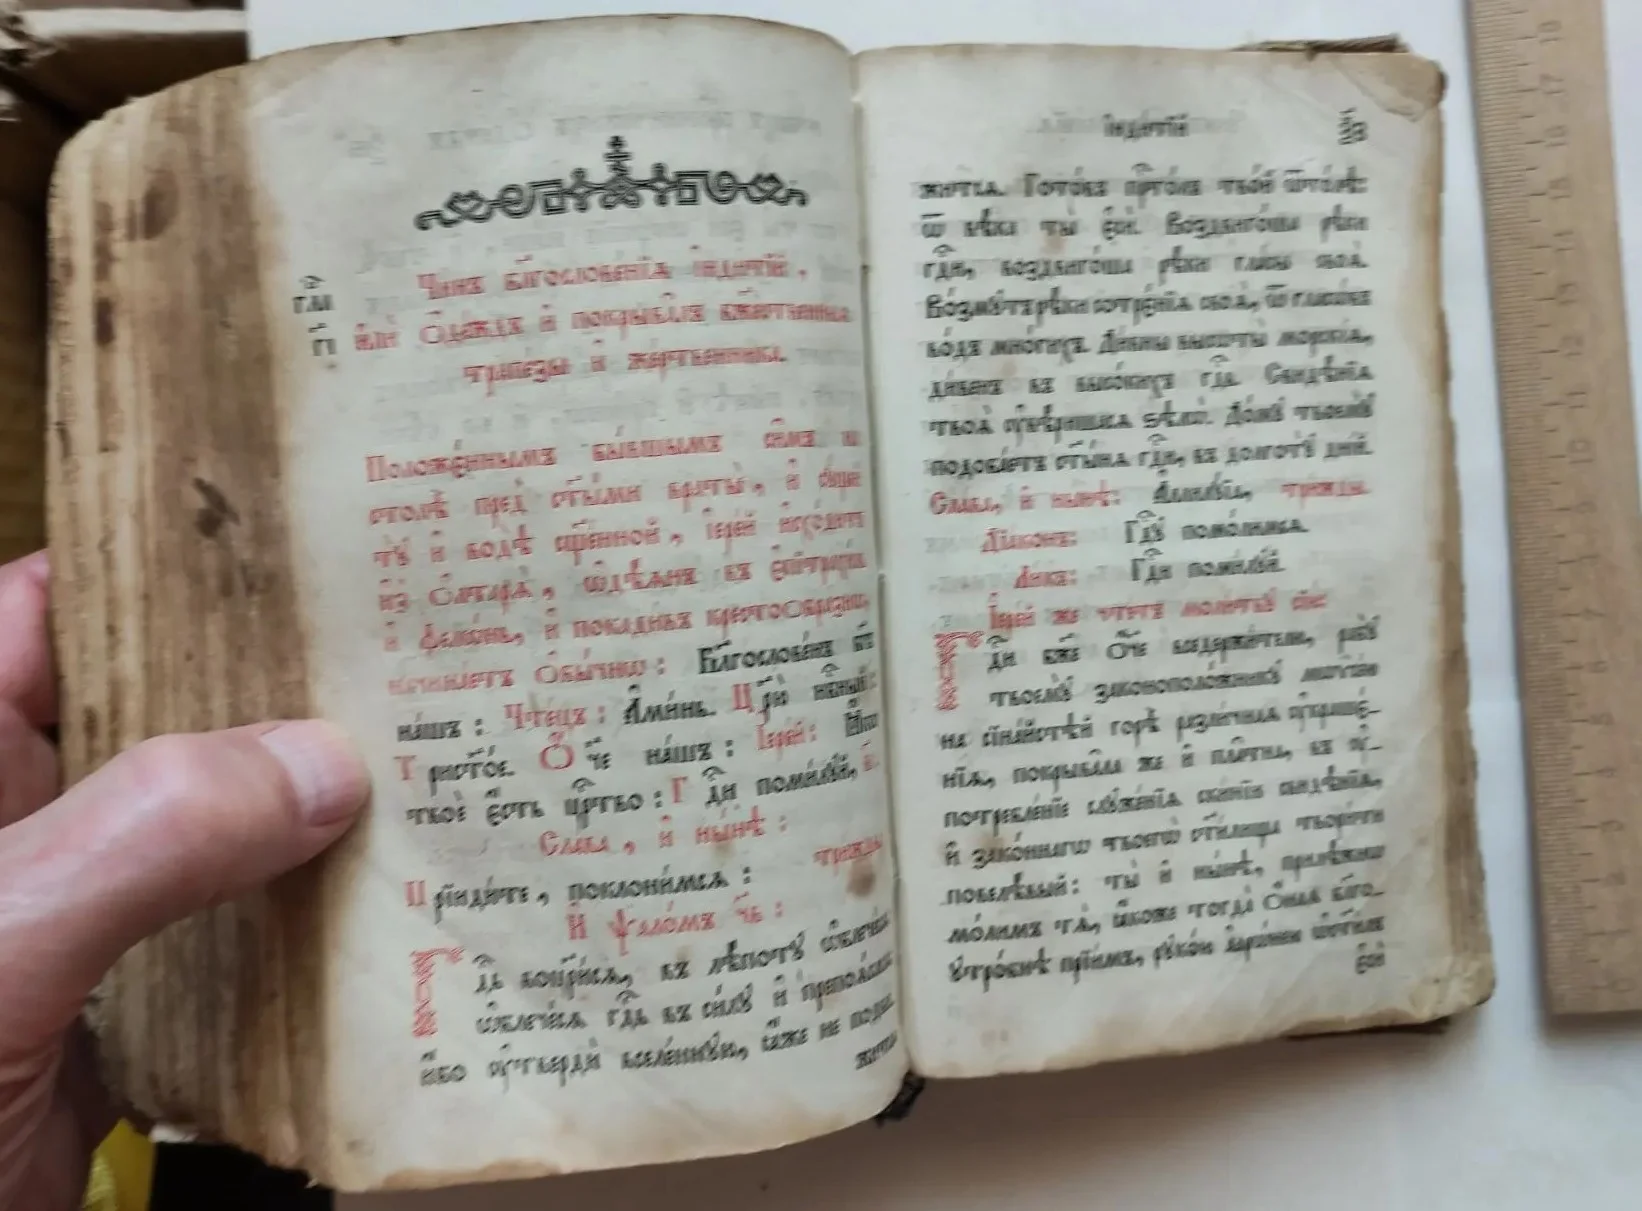 гл҃а
г҃і
Чинъ бл҃гослове́нїѧ і҆нди́тїй,
и҆лѝ ѻ҆де́ждъ и҆ покрыва́лъ бж҃е́ственныѧ
трапе́зы и҆ же́ртвенника.
Положє́ннымъ бы́вшымъ си̑мъ на
столѣ̀ пред̾ ст҃ы́ми враты̀, и҆ сꙋ́щей
тꙋ̀ и҆ водѣ̀ сщ҃е́нной, і҆ере́й и҆схо́дитъ
и҆з̾ ѻ҆лтарѧ̀, ѡ҆дѣ́ѧнъ въ є҆пїтрахи́ль
и҆ фело́нь, и҆ покади́въ крⷭ҇тоѻбра́знѡ,
начина́етъ ѻ҆бы́чнѡ: Бл҃гослове́нъ бг҃ъ
на́шъ: Чте́цъ: А҆ми́нь. Цр҃ю̀ нбⷭ҇ный:
Трист҃о́е. Ѻ҆́ч҃е на́шъ: І҆ере́й: Ꙗ҆́кѡ
твоѐ є҆́сть црⷭ҇тво: Гдⷭ҇и поми́лꙋй, в҃і.
Сла́ва, и҆ ны́нѣ:
Прїиди́те, поклони́мсѧ: три́жды
И҆ ѱало́мъ ч҃в:
Гдⷭ҇ь воцр҃и́сѧ, въ лѣ́потꙋ ѡ҆блече́сѧ
ѡ҆блече́сѧ гдⷭ҇ь въ си́лꙋ и҆ препоѧ́сасѧ
и҆́бо ᲂу҆твердѝ вселе́ннꙋю, ꙗ҆́же не подви́-
житсѧ
І҆нди́тїй
житсѧ. Гото́въ прⷭ҇то́лъ тво́й ѿто́лѣ:
ѿ вѣ́ка ты̀ є҆сѝ. Воздвиго́ша рѣ́ки
гдⷭ҇и, воздвиго́ша рѣ́ки гла́сы своѧ̑.
Во́змꙋтъ рѣ́ки сотрє́нїѧ своѧ̑, ѿ гласѡ́въ
во́дъ мно́гихъ. Ди̑вны высѡты̀ морскі̑ѧ,
ди́венъ въ высо́кихъ гдⷭ҇ь. Свидѣ̑нїѧ
твоѧ̑ ᲂу҆вѣ́ришасѧ ѕѣлѡ̀. До́мꙋ твоемꙋ̀
подоба́етъ ст҃ы́нѧ гдⷭ҇и, въ долготꙋ̀ дні́й.
Сла́ва, и҆ ны́нѣ: А҆ллилꙋ́їа, три́жды.
Дїа́конъ: Гдⷭ҇ꙋ помо́лимсѧ.
Ли́къ: Гдⷭ҇и поми́лꙋй.
І҆ере́й же чте́тъ моли́твꙋ сїю̀:
Гдⷭ҇и бж҃е ѻ҆́ч҃е вседержи́телю, рабꙋ̀
твоемꙋ̀ законополо́жникꙋ мѡѷсе́ю
на сїна́йстѣй горѣ̀ разли̑чнаѧ ᲂу҆краше́-
нїѧ, покрыва̑ла же и҆ пла̑тна, въ ᲂу҆-
потребле́нїе слꙋже́нїѧ ски́нїи свидѣ́нїѧ,
и҆ зако́ннагѡ твоегѡ̀ ст҃и́лища твори́ти
повелѣ́вый: ты̀ и҆ ны́нѣ, прилѣ́жнѡ
мо́лимъ тѧ̀, ꙗ҆́коже тогда̀ ѻ҆́наѧ бл҃го-
ᲂу҆тро́бнѣ прїи́мъ, рꙋко́ю а҆арѡ́ни ѡ҆ст҃и́лъ
є҆сѝ